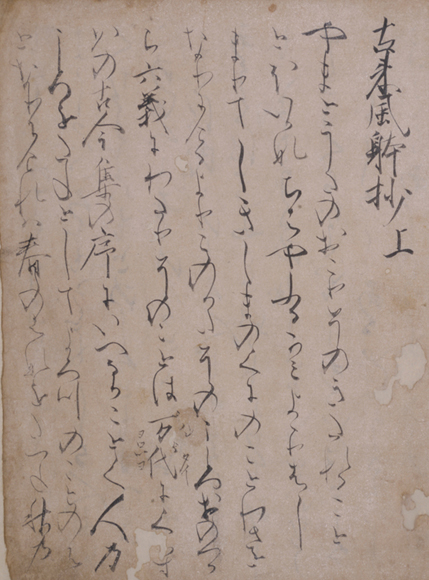 古来風躰抄上
やまとうたのおこりそのきたれること
とほいかな ちはやふるかみよよりはし
まりてしきしまのくにのことわさと
なりにけるよりこのかたそのこゝろおのつか
ら六義にわたりそのことは万代にくちす
かの古今集の序にいへることく人の
こゝろをたねとしてよろつのことのは
となりにけれは春のはなをたつね秋の